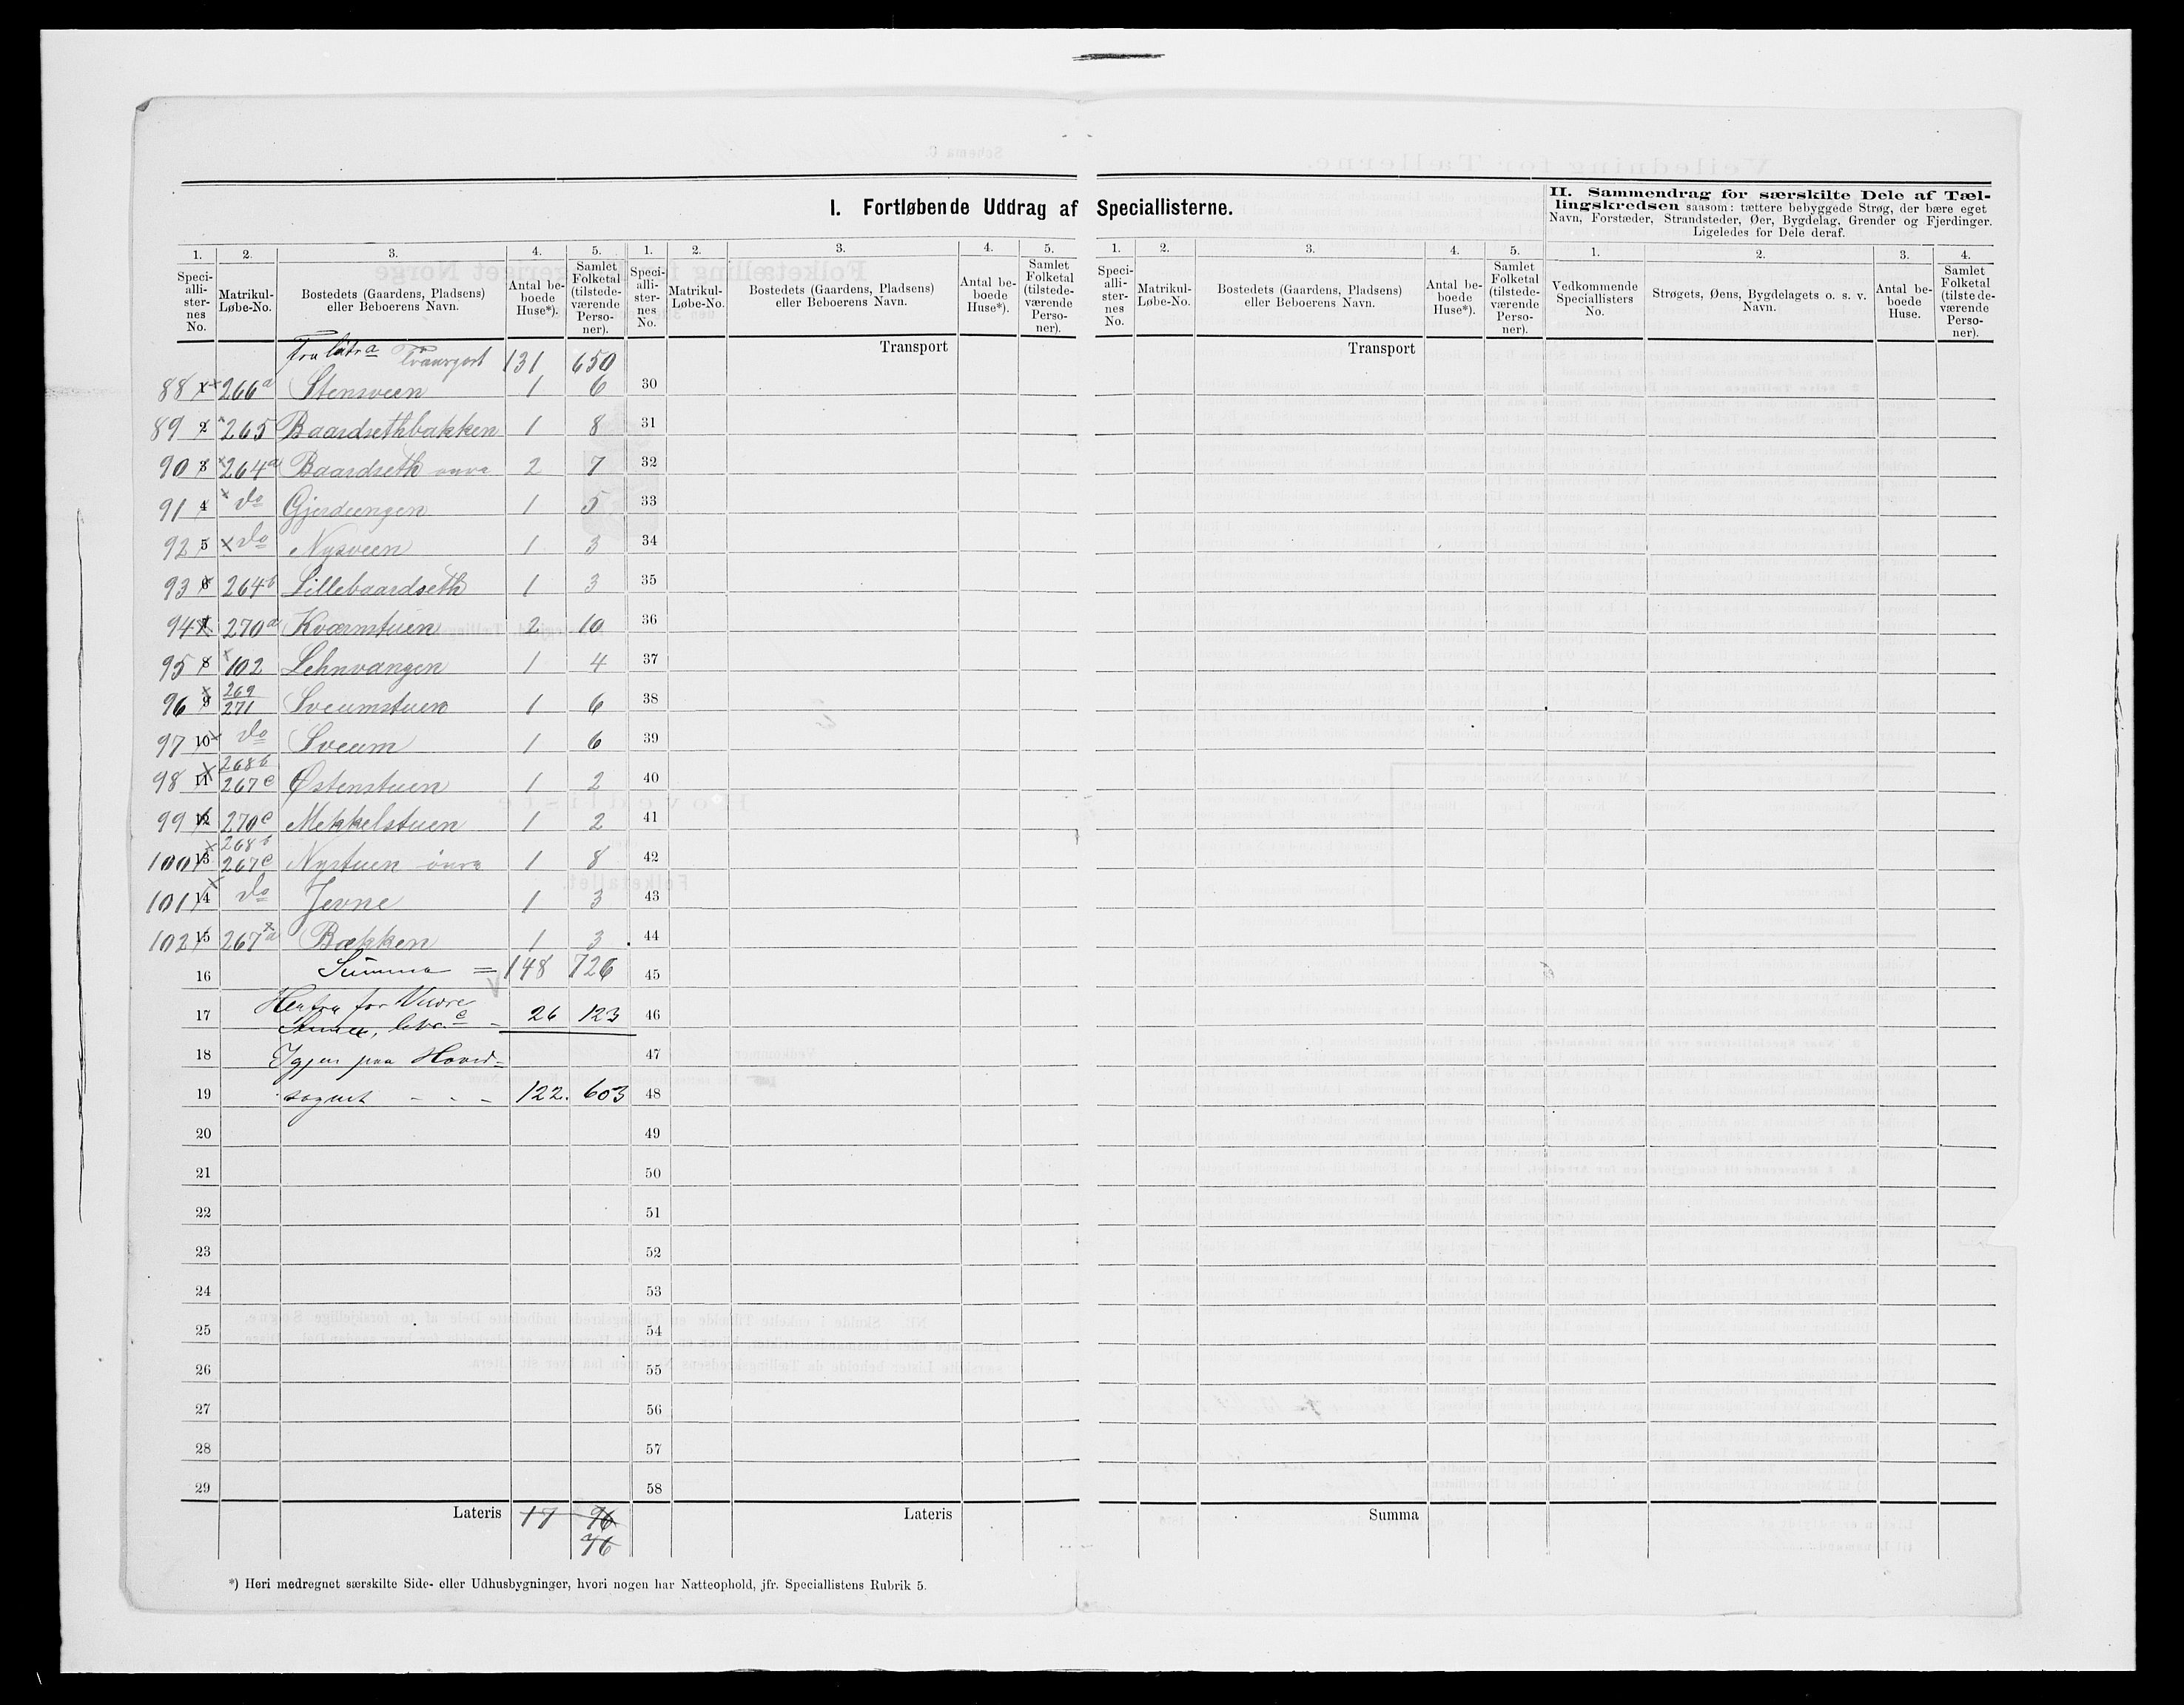 I. Fortløbende Uddrag af Speciallisterne.
II. Sammendrag for særskilte Dele af Tæl-
lingskredsen saasom: tættere bebyggede Strøg, der bære eget
Navn, Forstæder, Strandsteder, Øer, Bygdelag, Grender og Fjerdinger.
Ligeledes for Dele deraf.
1. 2. 3. 4. 5. 1. 2. 3. 4. 5. 1. 2. 3. 4. 5. 1. 2. 3. 4.
Speci-alli-ster-nes No. Matrikul-Løbe-No. Bostedets (Gaardens, Pladsens) eller Beboerens Navn. Antal be-boede Huse*). Samlet Folketal (tilstede-værende Perso-ner).
Speci-alli-ster-nes No. Matrikul-Løbe-No. Bostedets (Gaardens, Pladsens) eller Beboerens Navn. Antal be-boede Huse*). Samlet Folketal (tilstede-værende Perso-ner).
Speci-alli-ster-nes No. Matrikul-Løbe-No. Bostedets (Gaardens, Pladsens) eller Beboerens Navn. Antal be-boede Huse*). Samlet Folketal (tilstede-værende Perso-ner).
Vedkommende Speciallisters No. Strøgets, Øens, Bygdelagets o. s. v. Navn. Antal be-boede Huse. Samlet Folketal (tilstede-værende Perso-ner).
Fra litra a 131 650 Transport Transport
88 1 266a Stensveen 1 6 30
89 2 265 Baardsethbakken 1 8 31
90 3 264a Baardseth 2 7 32
91 4 do Gjerdeengen 1 5 33
92 5 do Nysveen 1 3 34
93 6 264b Lillebaardseth 1 3 35
94 7 270a Kværnstuen 2 10 36
95 8 102 Lehnvangen 1 4 37
96 9 269 271 Sveumstuen 1 6 38
97 10 do Sveum 1 6 39
98 11 268b 267c Østenstuen 1 2 40
99 12 270c Mekkelstuen 1 2 41
100 13 268b 267c Nystuen 1 8 42
101 14 do Jevne 1 3 43
102 15 267a Bækken 1 3 44
16 Summa = 148 726 45
17 Herfra for
litr. c 26 123 46
18 Igjen paa Hoved- 47
19 sognet - - - 122. 603 48
20 49
21 50
22 51
23 52
24 53
25 54
26 55
27 56
28 57
29 58
Lateris 17 96 Lateris Summa
76
*) Heri medregnet særskilte Side- eller Udhusbygninger, hvori nogen har Natteophold, jfr. Speciallistens Rubrik 5.